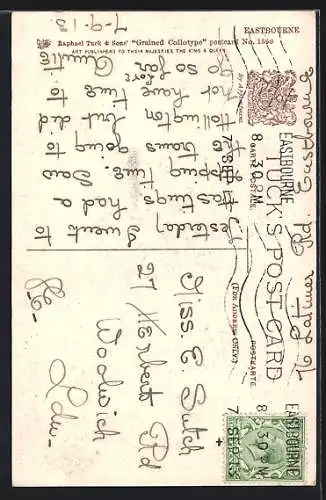 EASTBOURNE
Raphael Tuck & Sons' "Grained Collotype" postcard No. 1560
ART PUBLISHERS TO THEIR MAJESTIES THE KING & QUEEN.
7-9-13
76 Latimer Rd
Eastbourne
Yesterday
I went to
Hastings
had a
ripping time. Saw
the trams going to
Hollington but did
not have time to
go so far
Love
TUCK'S POST CARD
CARTE POSTALE
POSTKARTE
(FOR ADDRESS ONLY)
EASTBOURNE
8 30 PM
7 SEP
EASTBOURNE
8 30 PM
7 SEP 13
Miss E Sutch
27 Herbert Rd
Woolwich
Ldn-
S.E-